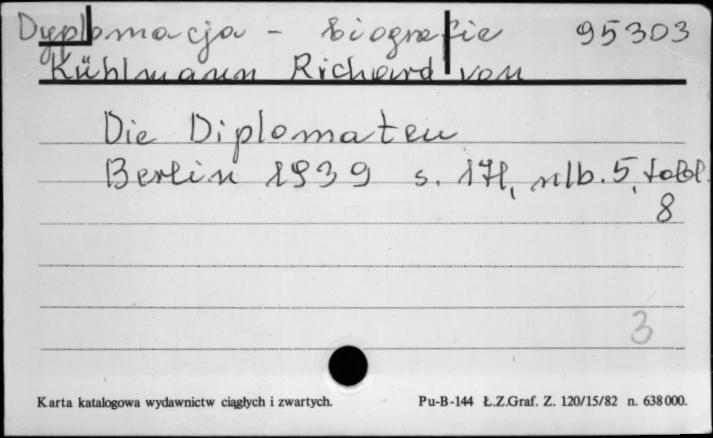 Dyplomacja - biografie 95303
Kühlmann Richard von
Die Diplomaten
Berlin 1939 s. 171, nlb. 5, tabl.
8
3
Karta katalogowa wydawnictw ciągłych i zwartych. Pu-B-144 Ł.Z.Graf. Z. 120/15/82 n. 638 000.